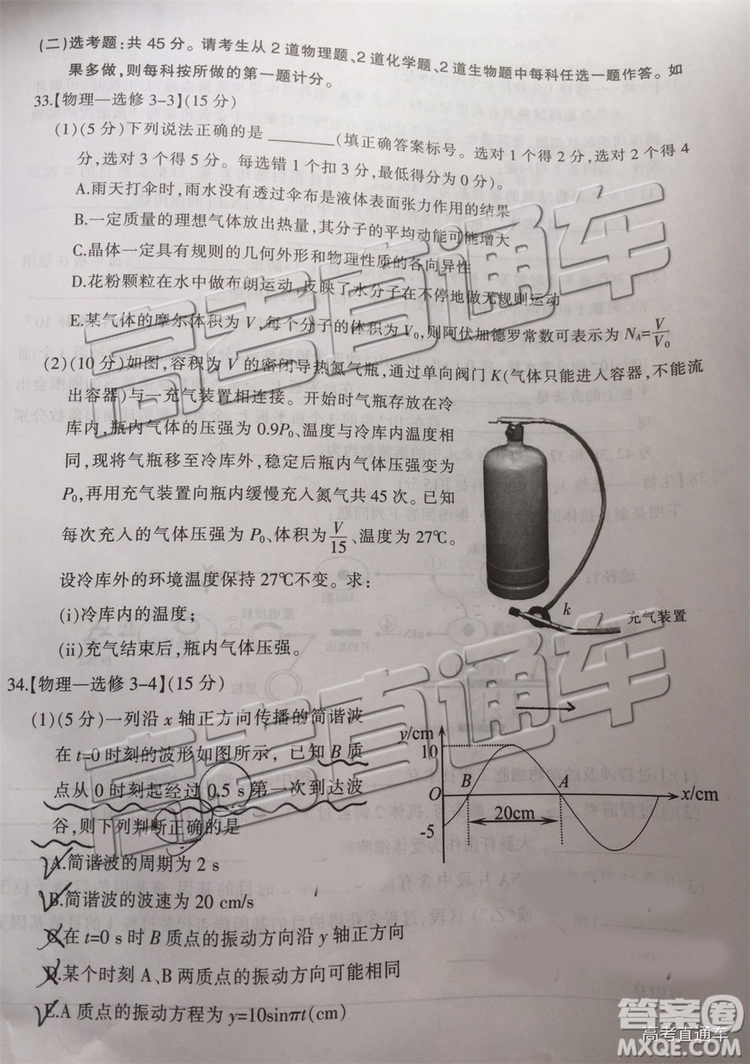 (二)选考题:共 45 分。请考生从 2 道物理题、2 道化学题、2 道生物题中每科任选一题作答。如
果多做,则每科按所做的第一题计分。
33.【物理—选修 3-3】(15 分)
(1)(5 分)下列说法正确的是 ________(填正确答案标号。选对 1 个得 2 分,选对 2 个得 4
分,选对 3 个得 5 分。每选错 1 个扣 3 分,最低得分为 0 分)。
A.雨天打伞时,雨水没有透过伞布是液体表面张力作用的结果
B.一定质量的理想气体放出热量,其分子的平均动能可能增大
C.晶体一定具有规则的几何外形和物理性质的各向异性
D.花粉颗粒在水中做布朗运动,反映了水分子在不停地做无规则运动
E.某气体的摩尔体积为 V,每个分子的体积为 V₀,则阿伏加德罗常数可表示为 N_A=V/V₀
(2)(10 分)如图,容积为 V 的密闭导热氮气瓶,通过单向阀门 K(气体只能进入容器,不能流
出容器)与一充气装置相连接。开始时气瓶存放在冷
库内,瓶内气体的压强为 0.9P₀、温度与冷库内温度相
同,现将气瓶移至冷库外,稳定后瓶内气体压强变为
P₀,再用充气装置向瓶内缓慢充入氮气共 45 次。已知
每次充入的气体压强为 P₀、体积为 V/15、温度为 27℃。
设冷库外的环境温度保持 27℃不变。求:
(i)冷库内的温度;
(ii)充气结束后,瓶内气体压强。
k
充气装置
34.【物理—选修 3-4】(15 分)
(1)(5 分)一列沿 x 轴正方向传播的简谐波
在 t=0 时刻的波形如图所示,已知 B 质
点从 0 时刻起经过 0.5 s 第一次到达波
谷,则下列判断正确的是
A.简谐波的周期为 2 s
B.简谐波的波速为 20 cm/s
C.在 t=0 s 时 B 质点的振动方向沿 y 轴正方向
D.某个时刻 A、B 两质点的振动方向可能相同
E.A 质点的振动方程为 y=10sinπt(cm)
y/cm
10
O
B
A
x/cm
20cm
-5
高考直通车
高考直通车
答案圈
高考直通车
MXQE.COM